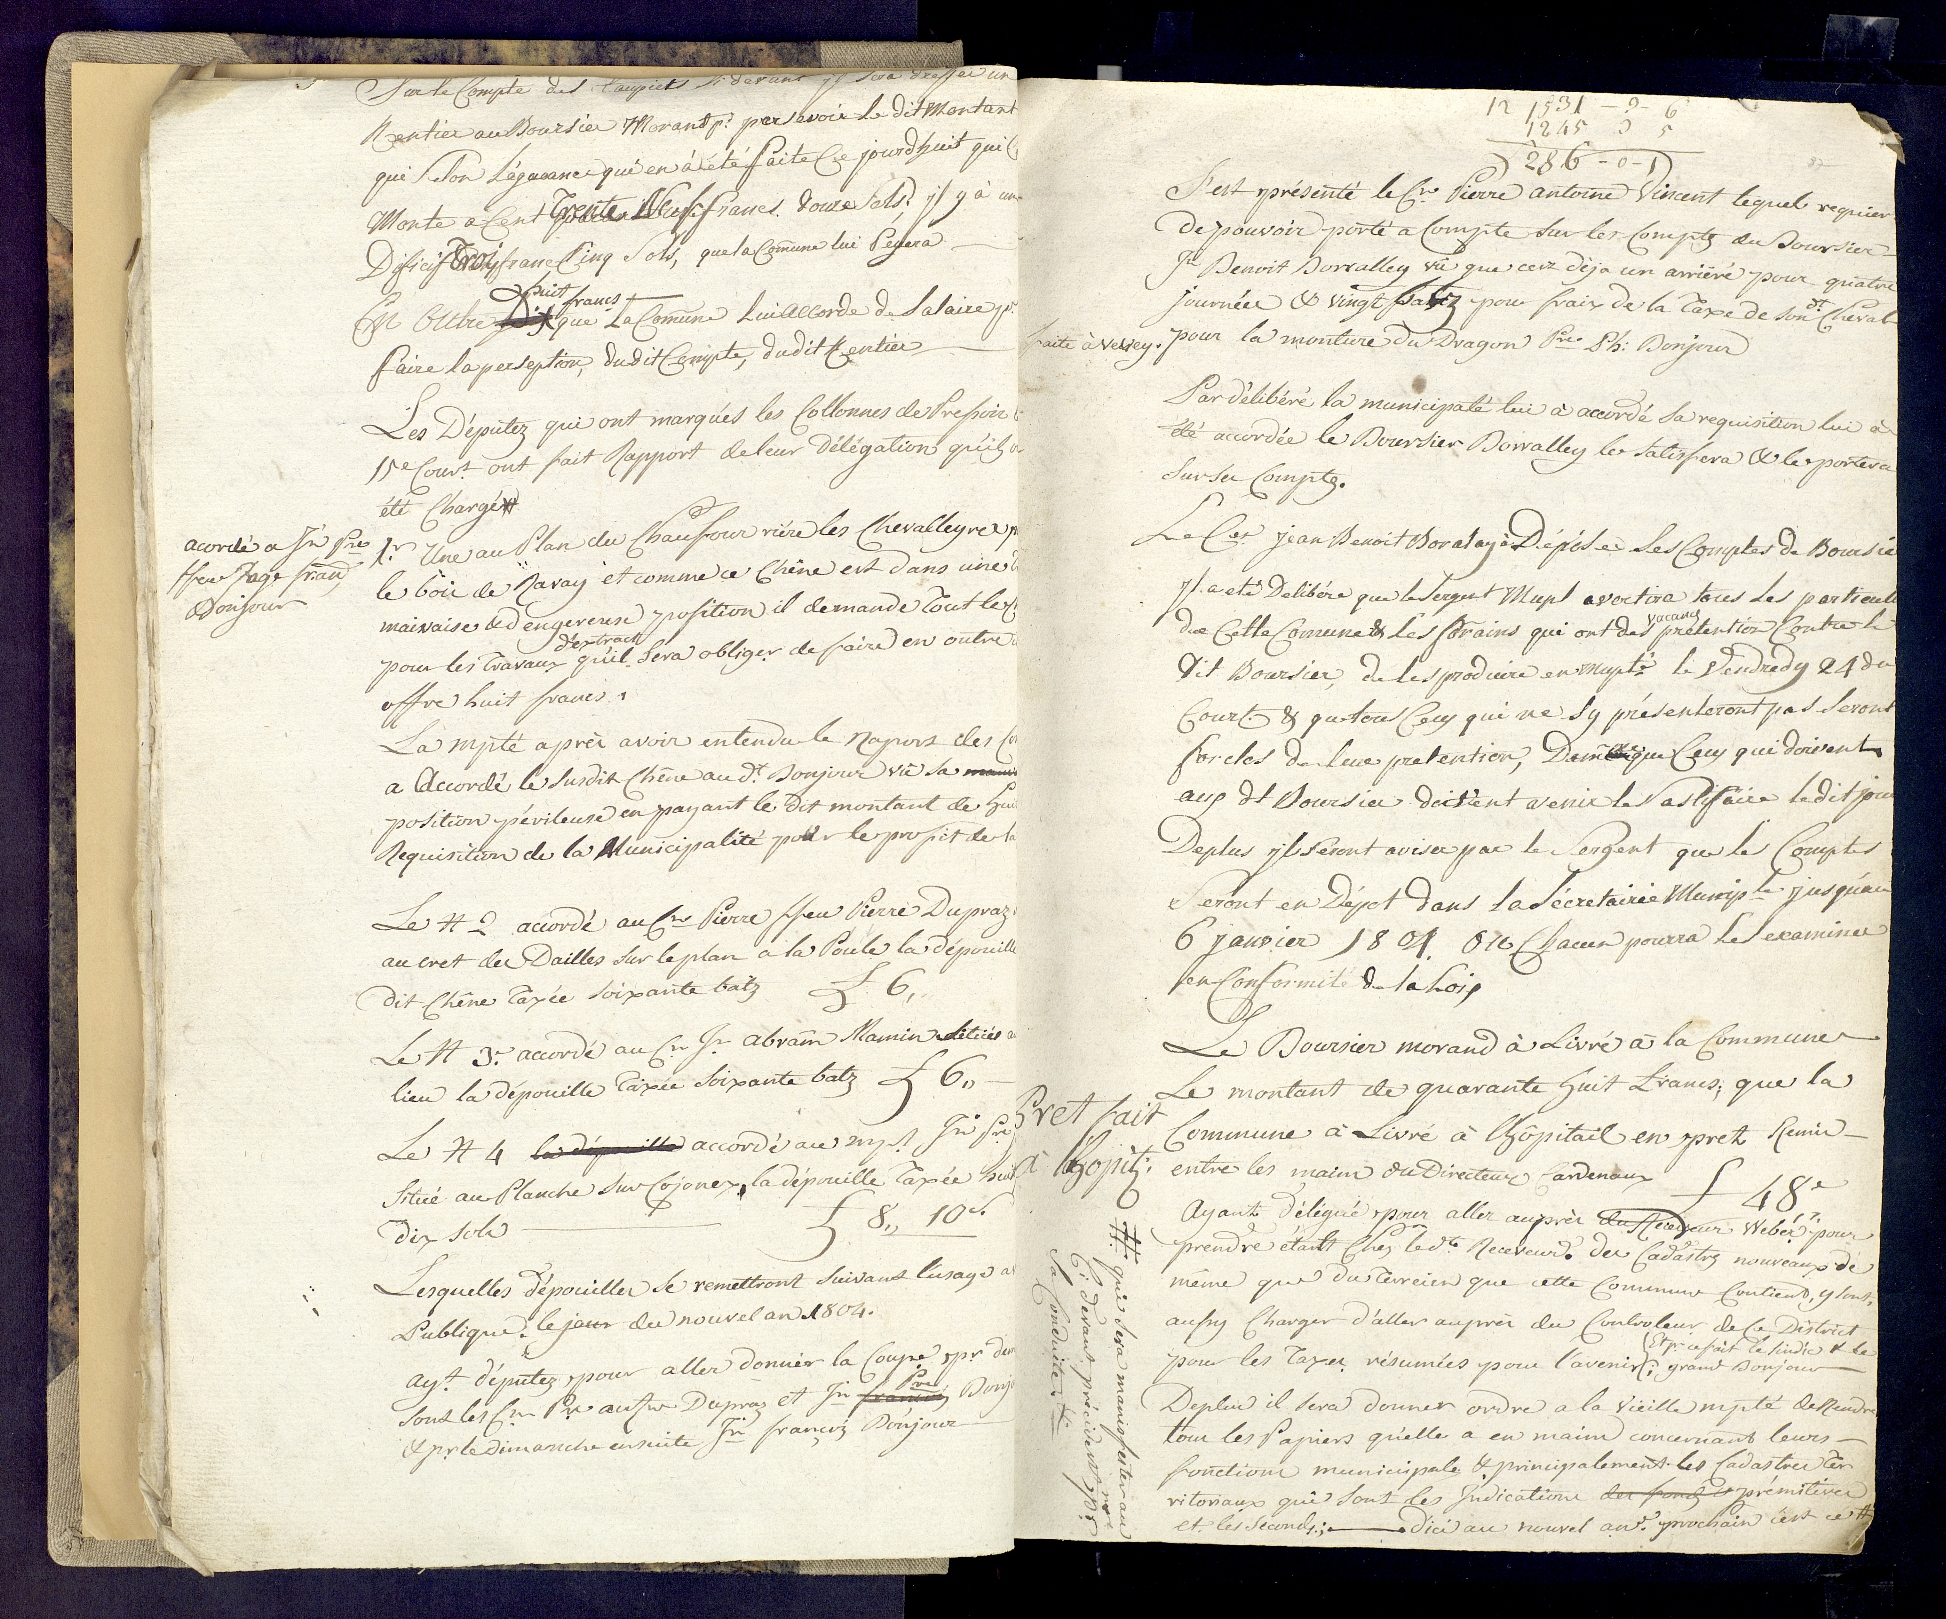 Sur le Compte des Coupiets Si devant jl sera dresser un
Rentier au Boursier Morand pr persevoir le dit Montant
qui Selon Légaance qui en à été faite Ce jourdhuit qui
Monte a Cent Trente Neuf francs douze Sols, jl y à un
Dificif Trois franc Cinq Sols, que la Comune lui Peyera
huit francs
En Outre Dix que La Comune Lui accorde de Salaire pr
faire la perseption, du dit Compte, du dit Rentier
Les Députez qui ont marqués les Collonnes de Pressoir
15e Court ont fait Rapport de leur délégation qu'ils
été Chargés
acordé a Jn Pre
ffeu Jaqe frans
Bonjour
1r Une au Plan du Chauffour rière les Chevalleyres
le bois de Ravay et comme ce Chêne est dans une
maivaise & dengereuse position il demande Tout le
d'extract
pour les Travaux qu'il Sera obliger de faire en outre
offre huit francs
La mpté après avoir entendu le Raport des
a accordé le Susdit Chêne au dt Bonjour vû sa
position périleuse en payant le dit montant de huit
Requisition de la Municipalité pour le profit de la
Le # 2 accordé au Cn Pierre ffeu Pierre Dupraz
au cret des Dailles sur le plan a la Poule la dépouille
dit Chêne Taxée soixante batz £ 6,,
Le # 3e accordé au Cn Jn abram Mamin Situés au
lieu la dépouille Taxée soixante batz £ 6,,
Le # 4 la dépouille accordé au mpl Jn Pre
Situé au Planche sur Cojonex, la dépouille Taxée huit
dix sols £ 8,, 10 s.
Lesquelles dépouilles se remettront suivant l'usage
Publique. le jour du nouvel an 1804.
ayt députez pour aller donner la Coupe pr
Pre
sont les Cns Pre antne Dupraz et Jn francois Bonjour
& pr le dimanche ensuite Jn françois Bonjour
12 1531 - 9 - 6
1245 9 5
286 - 0 - 1
S'est présenté le Cn Pierre antoine Vincent lequel requier
de pouvoir porté a Compte sur les Compts du Boursier
Jn Benoit Borralley vû que cerz déja un arriéré pour quatre
journée & vingt batz pour fraix de la Taxe de son dt Cheval
faite à Vevey. pour la monture du Dragon Pre Ph: Bonjour
Par délibéré la municipalé lui à accordé sa requisition lui à
été accordée le Boursier Borralley le satisfera & le portera
sur ses Compte.
Le Cen Jean Benoit Boralay à Déposé ses Comptes de Boursié
jl a eté Delibére que le Sergent Mupl avertira tous les particuli
vacans
de Cette Comune & les forains qui ont des prétention Contre le
dit Boursier, de les produire en mupté le Vendredy 24 du
Court & que tous Ceux qui ne sy présenteront pas seront
forclos de leur pretention, De même que Ceux qui doivent
aux dt Boursier doivent venir le Sastifaire le dit jour
Deplus jls seront aviser par le Sergent que les Comptes
Seront en Dépot dans la Sécretairie Municiple jusquau
6 janvier 1804 ou Chacun pourra les examiner
en Conformité de la Lois
Le Boursier morand à Livré à la Commune
Le montant de quarante huit francs; que la
Pret fait
à l'hopit:
Commune à Livré à l'hôpitail en pret Remis
entre les mains du Directeur Cardenaux £ 48 "
Ayant délégué pour aller auprès du Receveur Weber pour
prendre étant Chez le dt Receveur des Cadastre nouveaux de
même que du Terreien que cette Commune Contient, y sont
aussy Charger d'aller auprès du Controleur de Ce District
pour les Taxes résumées pour l'avenir; Et pr ce fait le Sindic & le grand Bonjour
Deplus il sera donner ordre a la vieille mpté de Rendre
tous les Papiers qu'elle a en mains concernant leurs
fonctions municipale & principalement les Cadastres Ter
ritoriaux qui sont les Indications des fonds prémitives
et les seconds; dici au nouvel an prochain c'est ce #
# qui sera manifester au
Ci devant précident pr
sa Conduite #